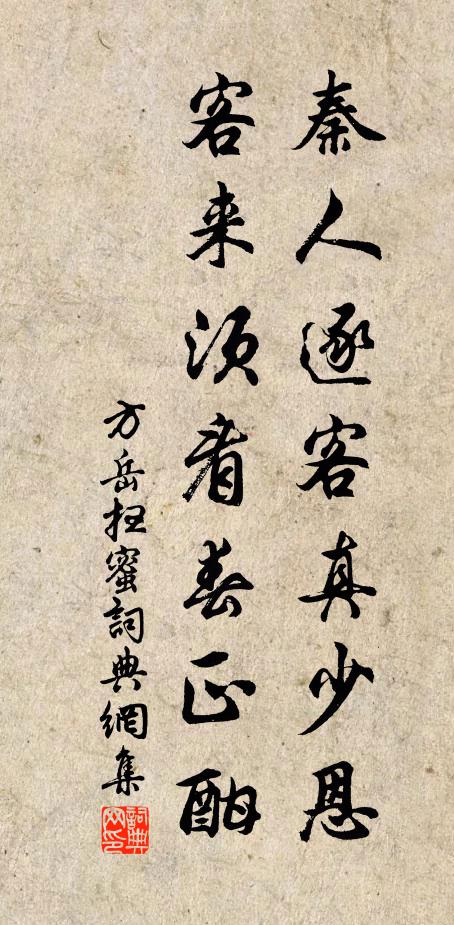 秦人逐客真少恩
客来须看春正酣
方岳抂蜜詞典網集
詞典網印